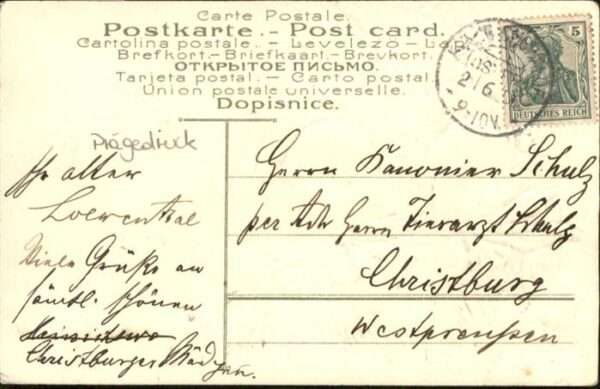 Carte Postale.
Postkarte.- Post card.
Cartolina postale.- Levelezo-La
Brefkort.-Briefkaart.-Brevkort.
ОТКРЫТОЕ ПИСЬМО.
Tarjeta postal.- Carto postal.
Union postale universelle.
Dopisnice.
5
DEUTSCHES REICH
2/6
9-10V.
Prägedruck
Ihr alter
Loewenthal
Viele Grüße an
sämtl. schönen
Christburger Mädchen.
Herrn Kanonier Schulz
per Adr Herrn Tierarzt Schulz
Christburg
Westpreußen